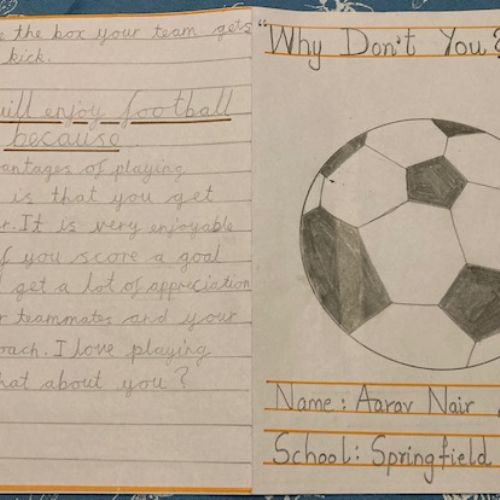 the box your team gets
kick.
will enjoy football
because
antages of playing
is that you get
r. It is very enjoyable
f you score a goal
get a lot of appreciation
r teammates and your
oach. I love playing
hat about you?
"Why Don't You?
Name: Aarav Nair
School: Springfield